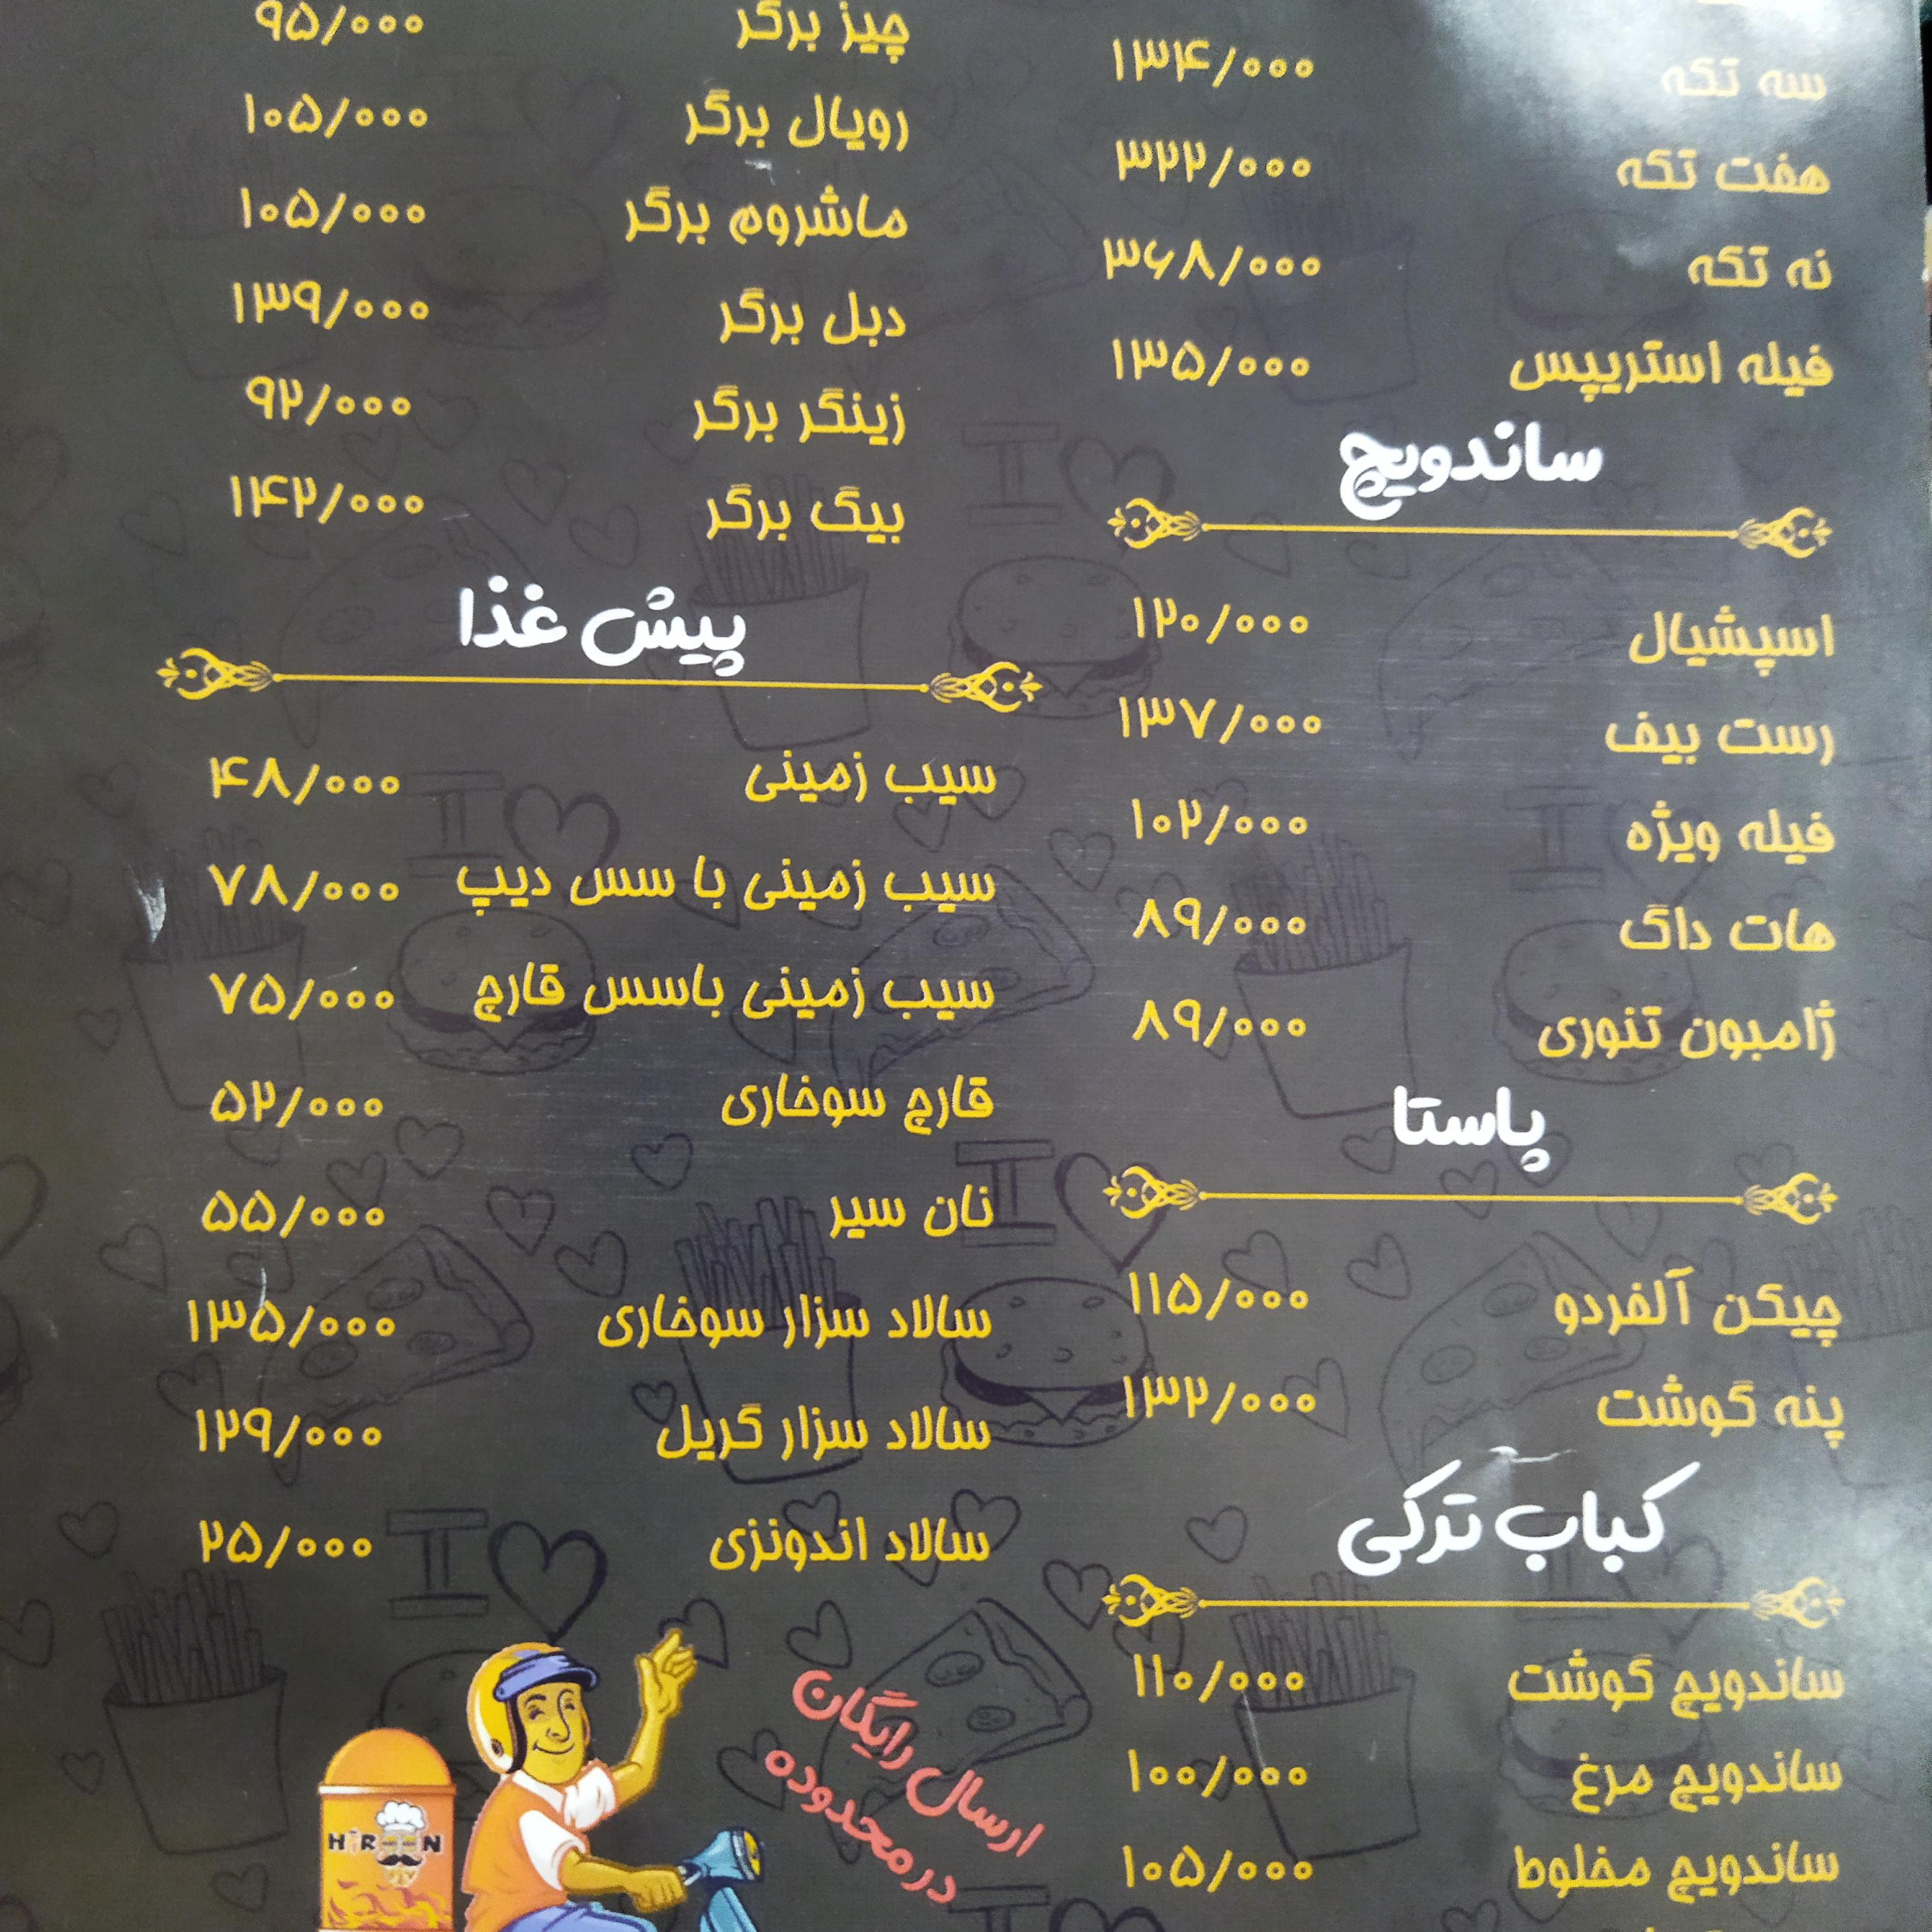 سه تکه ۱۳۴/۰۰۰
هفت تکه ۳۲۲/۰۰۰
نه تکه ۳۶۸/۰۰۰
فیله استریپس ۱۳۵/۰۰۰
ساندویچ
اسپشیال ۱۲۰/۰۰۰
رست بیف ۱۳۷/۰۰۰
فیله ویژه ۱۰۲/۰۰۰
هات داگ ۸۹/۰۰۰
ژامبون تنوری ۸۹/۰۰۰
پاستا
چیکن آلفردو ۱۱۵/۰۰۰
پنه گوشت ۱۳۲/۰۰۰
کباب ترکی
ساندویچ گوشت ۱۱۰/۰۰۰
ساندویچ مرغ ۱۰۰/۰۰۰
ساندویچ مخلوط ۱۰۵/۰۰۰
چیز برگر ۹۵/۰۰۰
رویال برگر ۱۰۵/۰۰۰
ماشروم برگر ۱۰۵/۰۰۰
دبل برگر ۱۳۹/۰۰۰
زینگر برگر ۹۲/۰۰۰
بیگ برگر ۱۴۲/۰۰۰
پیش غذا
سیب زمینی ۴۸/۰۰۰
سیب زمینی با سس دیپ ۷۸/۰۰۰
سیب زمینی باسس قارچ ۷۵/۰۰۰
قارچ سوخاری ۵۲/۰۰۰
نان سیر ۵۵/۰۰۰
سالاد سزار سوخاری ۱۳۵/۰۰۰
سالاد سزار گریل ۱۲۹/۰۰۰
سالاد اندونزی ۲۵/۰۰۰
ارسال رایگان
در محدوده